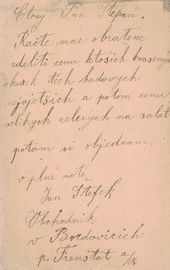 Ctěný Pan Štěpan.
Račte mne obratem
zděliti cenu letošich kvašených
okurek těch hadových
nejdelšich a potom cenu
velkych zelených na salat
potom si objednam.
v plné uctě,
Jan Stefek
Obchodnik
v Bordovicich
p. Frenštat